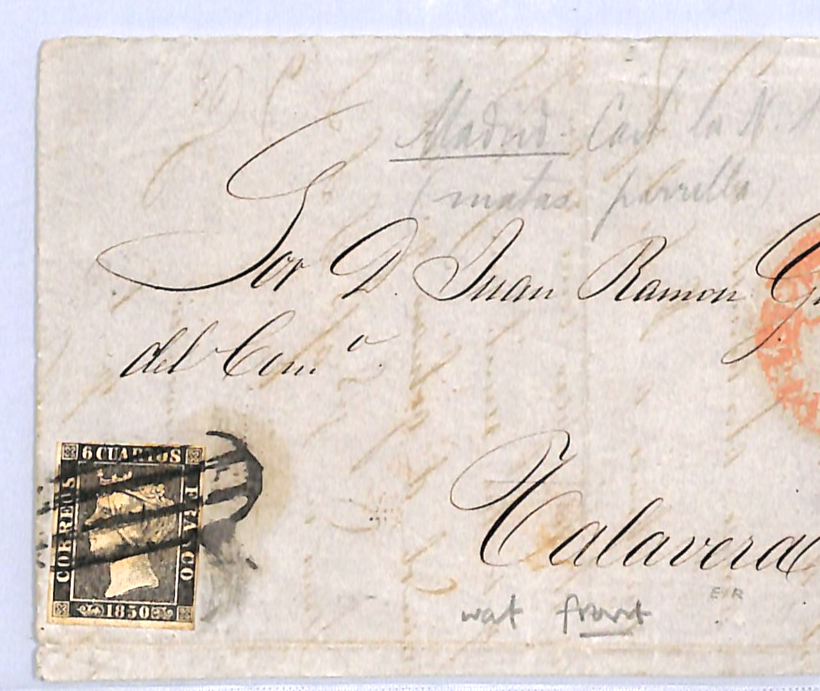 Madrid. Cart la N.
(matas parrilla)
Sor D. Juan Ramon
del Com.o
6 CUARTOS
CORREOS
FRANCO
1850
Calavera
wat front
E R